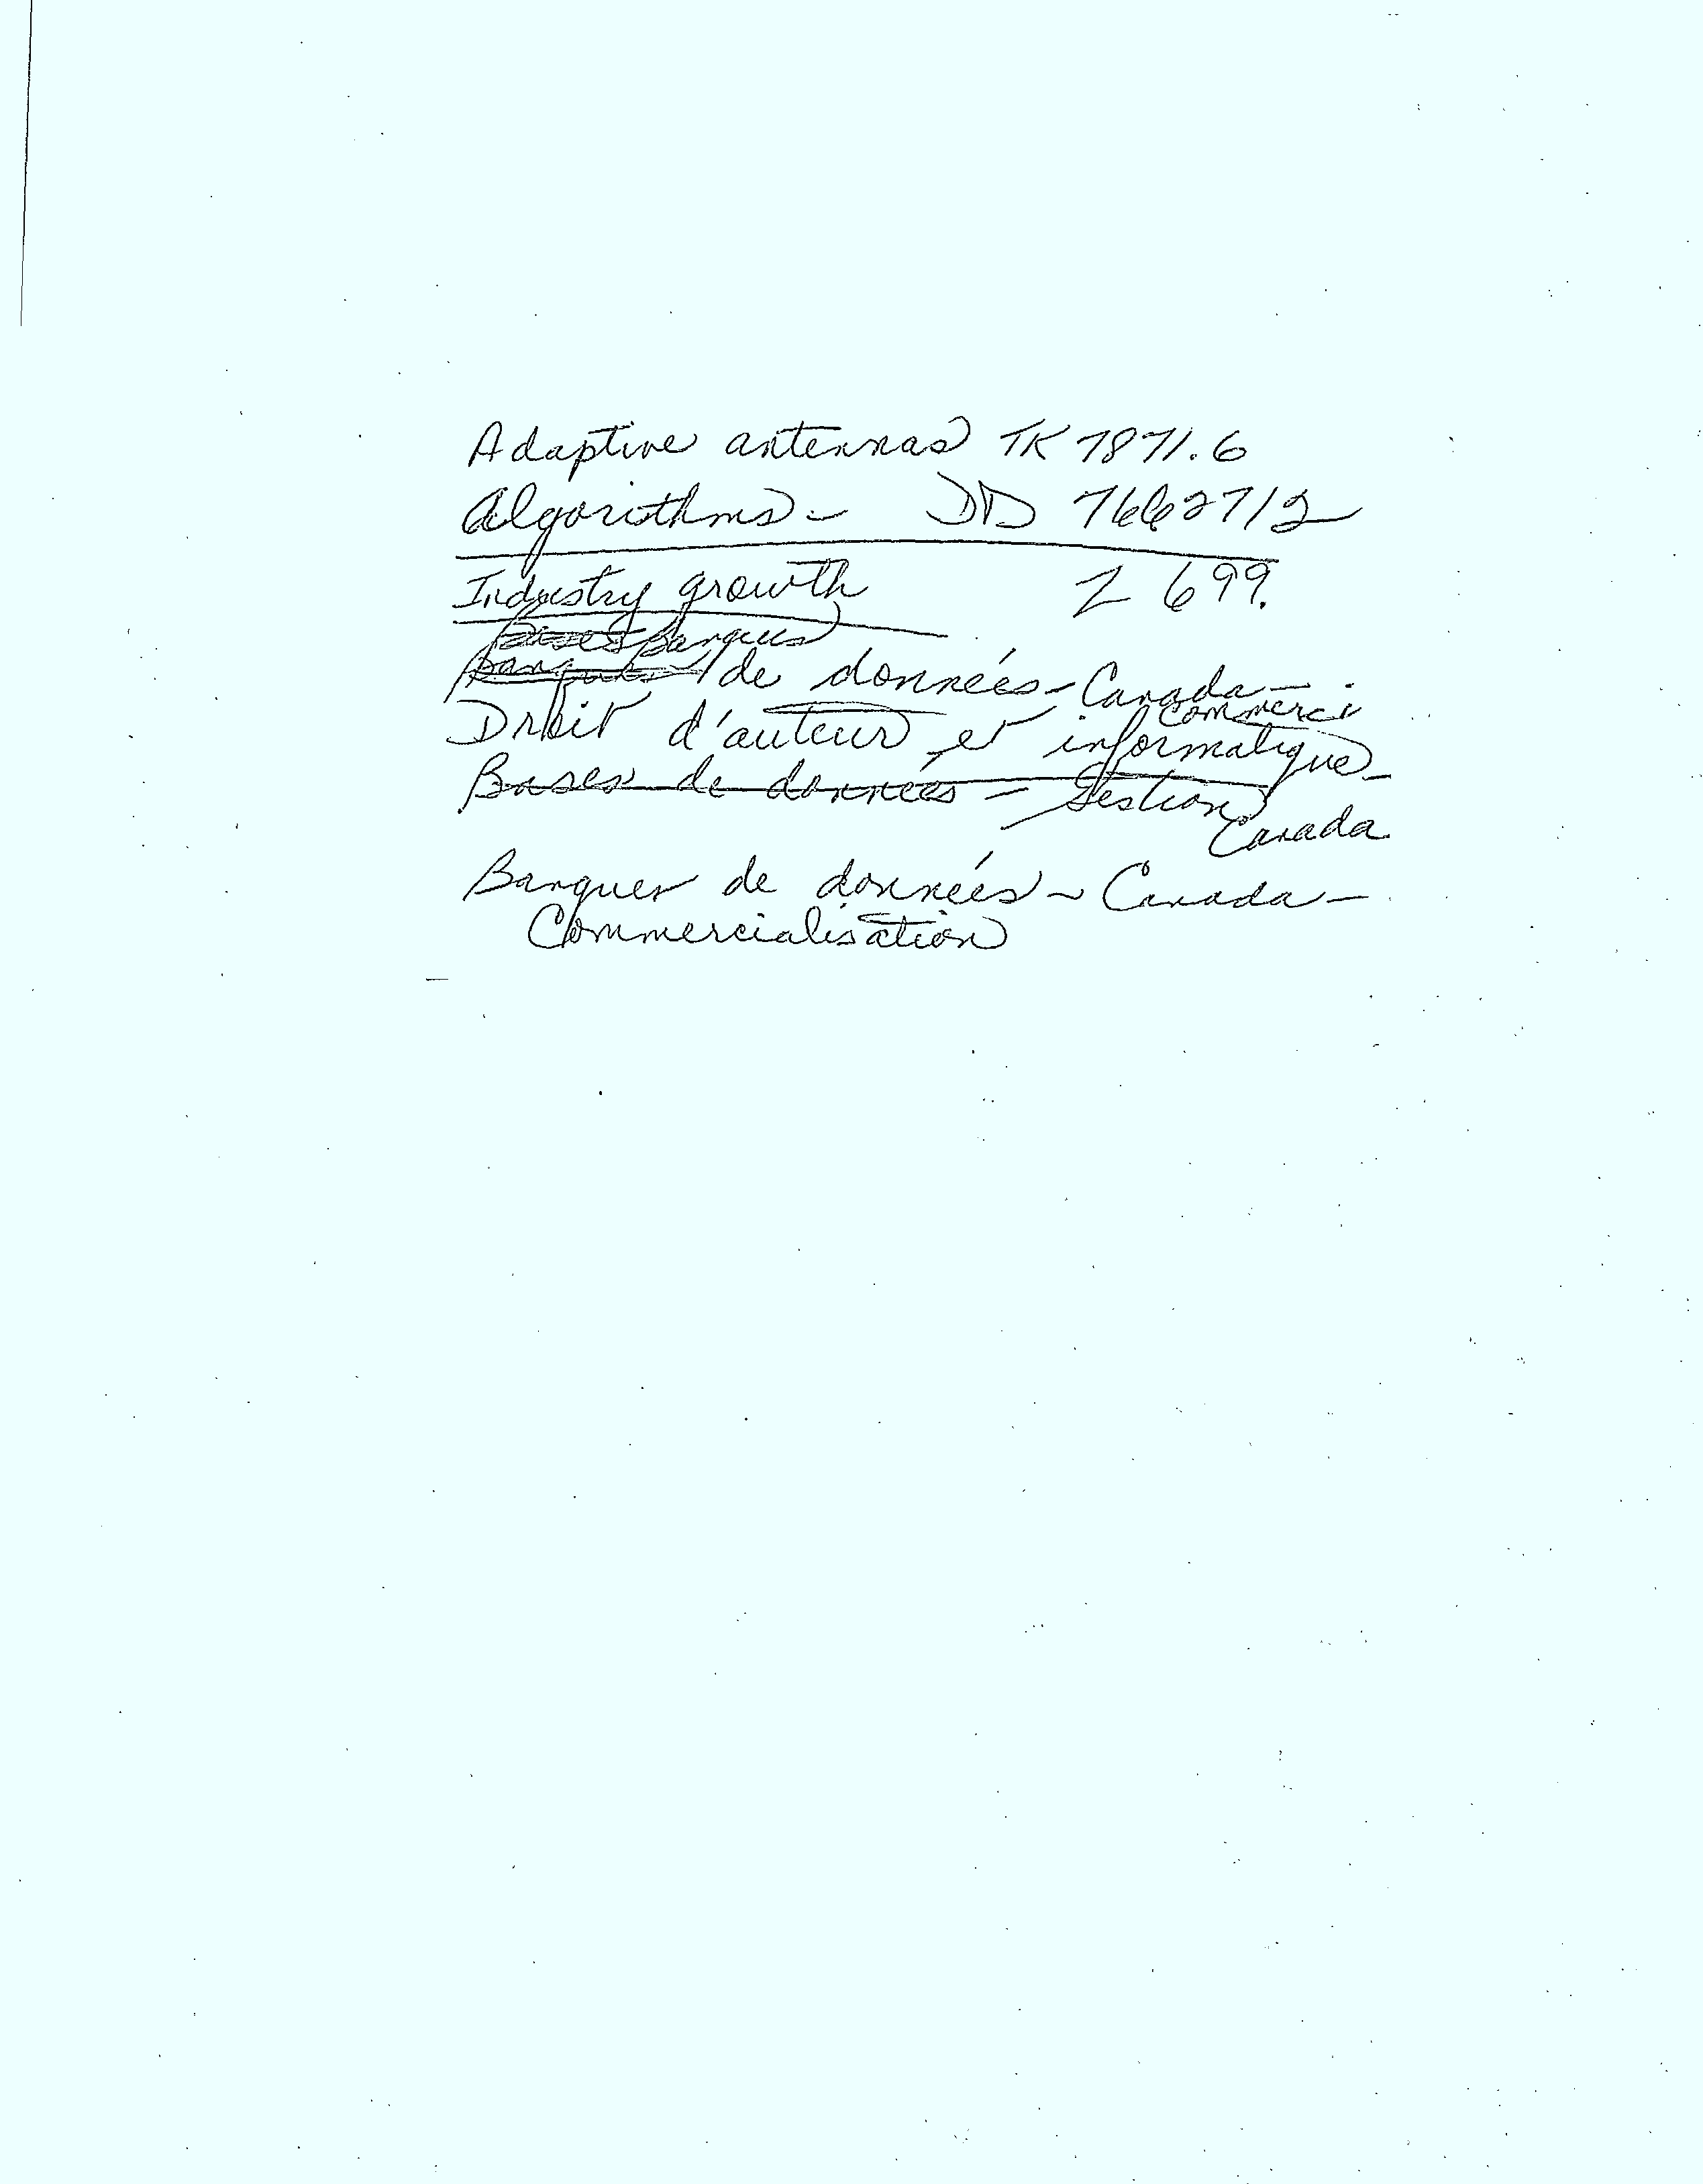 Adaptive antennas TK 7871.6
Algorithms - DD 7662712
Industry growth Z 699.
Bases Banques
Banques de données - Canada -
Commerci
Droit d'auteur et informatique -
Bases de données - Gestion
Canada
Banques de données - Canada -
Commercialisation